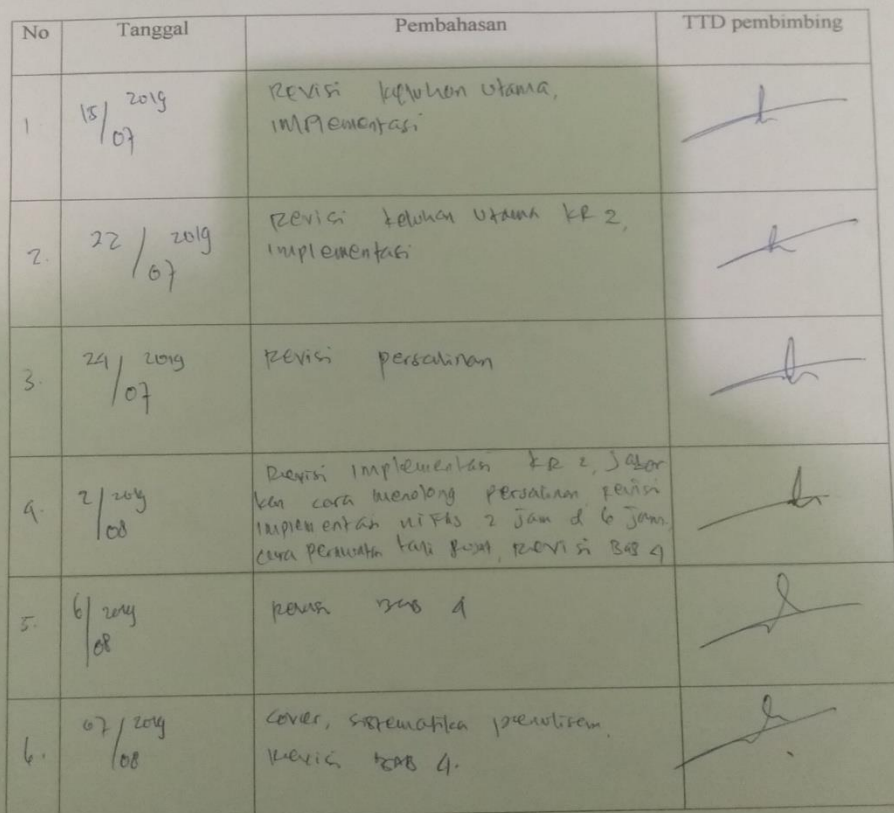 No Tanggal Pembahasan TTD pembimbing
1 15/07 2019 Revisi keluhan utama,
implementasi
2. 22/07 2019 Revisi keluhan utama KR 2,
implementasi
3. 24/07 2019 Revisi persalinan
4. 2/08 2019 Revisi implementasi KR 2, Jabar
kan cara menolong persalinan, revisi
implementasi nifas 2 jam & 6 jam,
cara perawatan tali pusat, Revisi BAB 4
5. 6/08 2019 Revisi BAB 4
6. 07/08 2019 Cover, sistematika penulisan,
Revisi BAB 4.